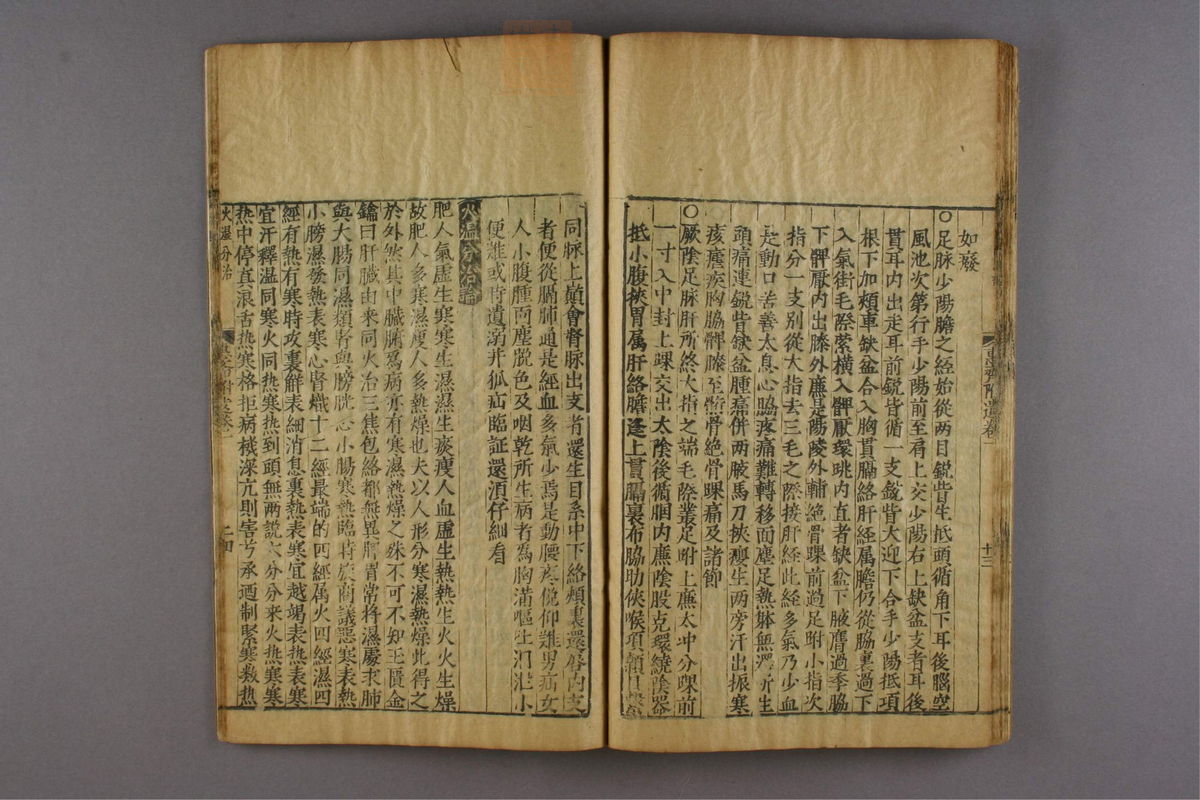 如廢
○足脉少陽膽之經始從兩目銳眥生抵頭循角下耳後腦空
風池次第行手少陽前至肩上交少陽右上缺盆支者耳後
貫耳内出走耳前銳眥循一支銳眥大迎下合手少陽抵項
根下加頰車缺盆合入胸貫膈絡肝經属膽仍從脇裏過下
入氣街毛際縈橫入髀厭環跳内直者缺盆下腋膺過季脇
下髀厭内出膝外廉是陽陵外輔絶骨踝前過足跗小指次
指分一支別從大指去三毛之際接肝經此經多氣乃少血
是動口苦善太息心脇疼痛難轉移面塵足熱體無澤所生
頭痛連銳眥缺盆腫痛併兩腋馬刀挾癭生兩旁汗出振寒
痎瘧疾胸脇髀膝至䯒骨絶骨踝痛及諸節
○厥陰足脉肝所終大指之端毛際叢足跗上廉太冲分踝前
一寸入中封上踝交出太陰後循膕内廉陰股克環繞陰器
抵小腹挾胃属肝絡膽逢上貫膈裏布脇肋俠喉項頏目
十三
同脉上巔會督脉出支者還生目系中下絡頰裏還唇内支
者便從膈肺通是經血多氣少焉是動腰疼俛仰難男疝女
人小腹腫面塵脫色及咽乾所生病者為胸滿嘔吐洞泄小
便難或時遺溺并狐疝臨証還湏仔細看
火濕分治論
肥人氣虛生寒寒生濕濕生痰瘦人血虛生熱熱生火火生燥
故肥人多寒濕瘦人多熱燥也夫以人形分寒濕熱燥此得之
於外然其中臟腑為病亦有寒濕熱燥之殊不可不知玉匱金
鑰曰肝臟由来同火治三焦包絡都無異脾胃常将濕處求肺
與大腸同濕類腎與膀胱心小腸寒熱臨時旋商議惡寒表熱
小膀濕發熱表寒心腎熾十二經最端的四經属火四經濕四
經有熱有寒時攻裏觧表細消息裏熱表寒宜越竭表熱裏寒
宜汗釋温同寒火同热寒热到頭無兩説六分分来火热寒寒
熱中停真浪舌热寒格拒病機深亢則害兮承迺制緊寒数热
火濕分治
二四